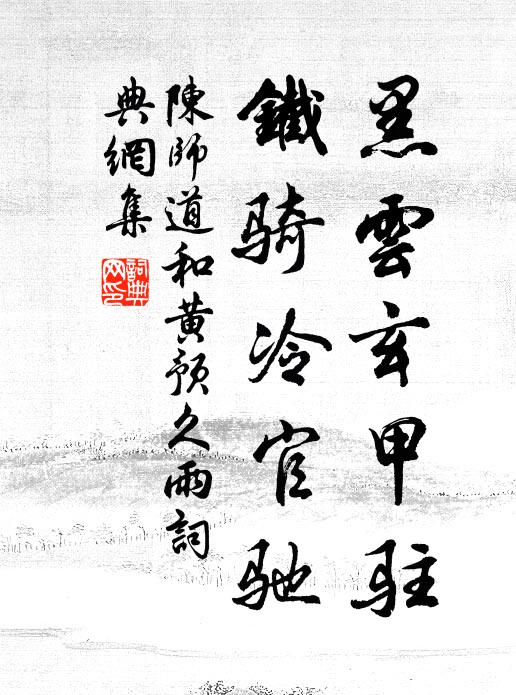 黑雲玄甲駐
鐵騎冷官馳
陳師道和黃預久雨詞
典網集
詞典網印